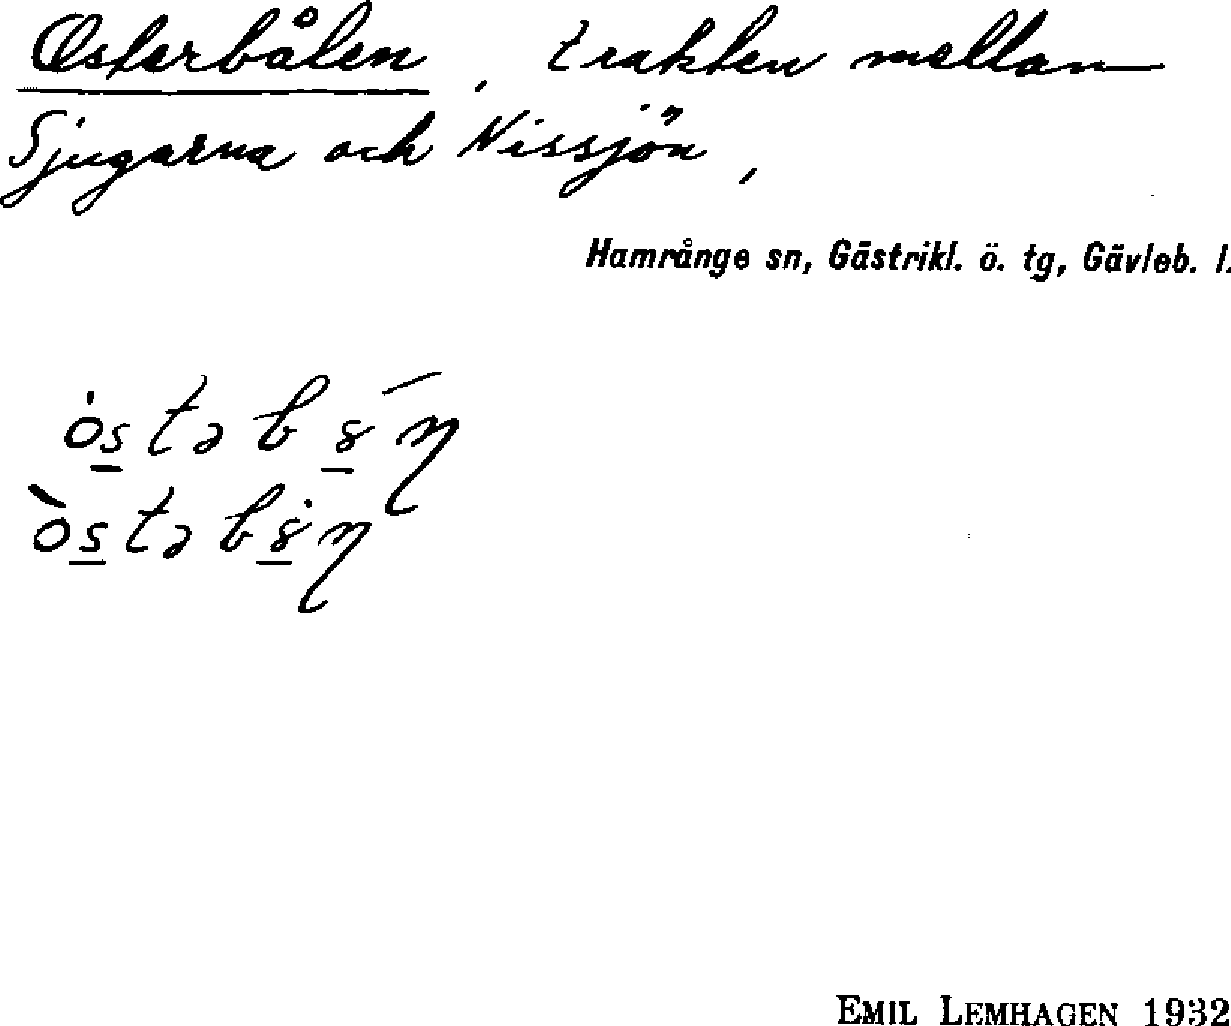 Østerbålen, trakten mellan
Sjugarna och Nissjön,
Hamrånge sn, Gästrikl. ö. tg, Gävleb. l.
EMIL LEMHAGEN 1932